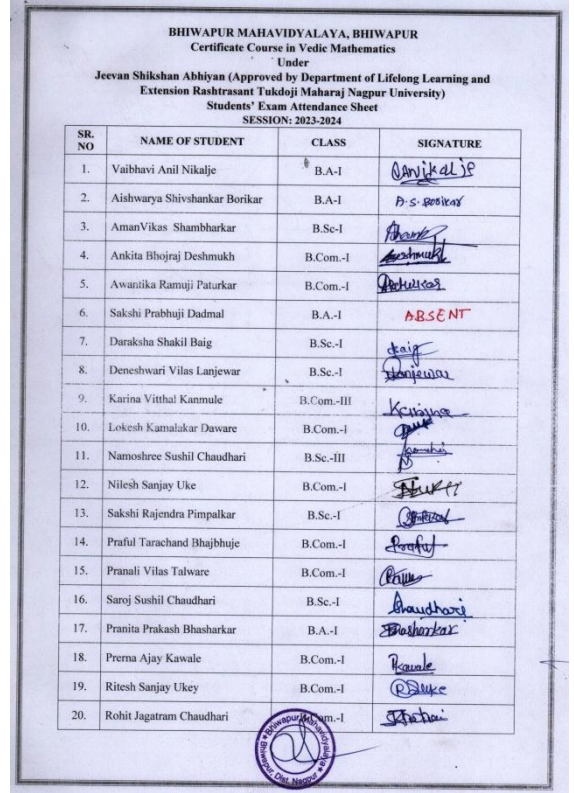 BHIWAPUR MAHAVIDYALAYA, BHIWAPUR
Certificate Course in Vedic Mathematics
Under
Jeevan Shikshan Abhiyan (Approved by Department of Lifelong Learning and
Extension Rashtrasant Tukdoji Maharaj Nagpur University)
Students' Exam Attendance Sheet
SESSION: 2023-2024
SR. NO NAME OF STUDENT CLASS SIGNATURE
1. Vaibhavi Anil Nikalje B.A-I
2. Aishwarya Shivshankar Borikar B.A-I A.S. Borikar
3. AmanVikas Shambharkar B.Sc-I
4. Ankita Bhojraj Deshmukh B.Com.-I Deshmukh
5. Awantika Ramuji Paturkar B.Com.-I Paturkar
6. Sakshi Prabhuji Dadmal B.A.-I ABSENT
7. Daraksha Shakil Baig B.Sc.-I Baig
8. Deneshwari Vilas Lanjewar B.Sc.-I Lanjewar
9. Karina Vitthal Kanmule B.Com.-III
10. Lokesh Kamalakar Daware B.Com.-I
11. Namoshree Sushil Chaudhari B.Sc.-III
12. Nilesh Sanjay Uke B.Com.-I
13. Sakshi Rajendra Pimpalkar B.Sc.-I
14. Praful Tarachand Bhajbhuje B.Com.-I Praful
15. Pranali Vilas Talware B.Com.-I
16. Saroj Sushil Chaudhari B.Sc.-I Chaudhari
17. Pranita Prakash Bhasharkar B.A.-I Bhasharkar
18. Prerna Ajay Kawale B.Com.-I Kawale
19. Ritesh Sanjay Ukey B.Com.-I
20. Rohit Jagatram Chaudhari B.Com.-I
Bhiwapur Mahavidyalaya
Bhiwapur, Dist. Nagpur